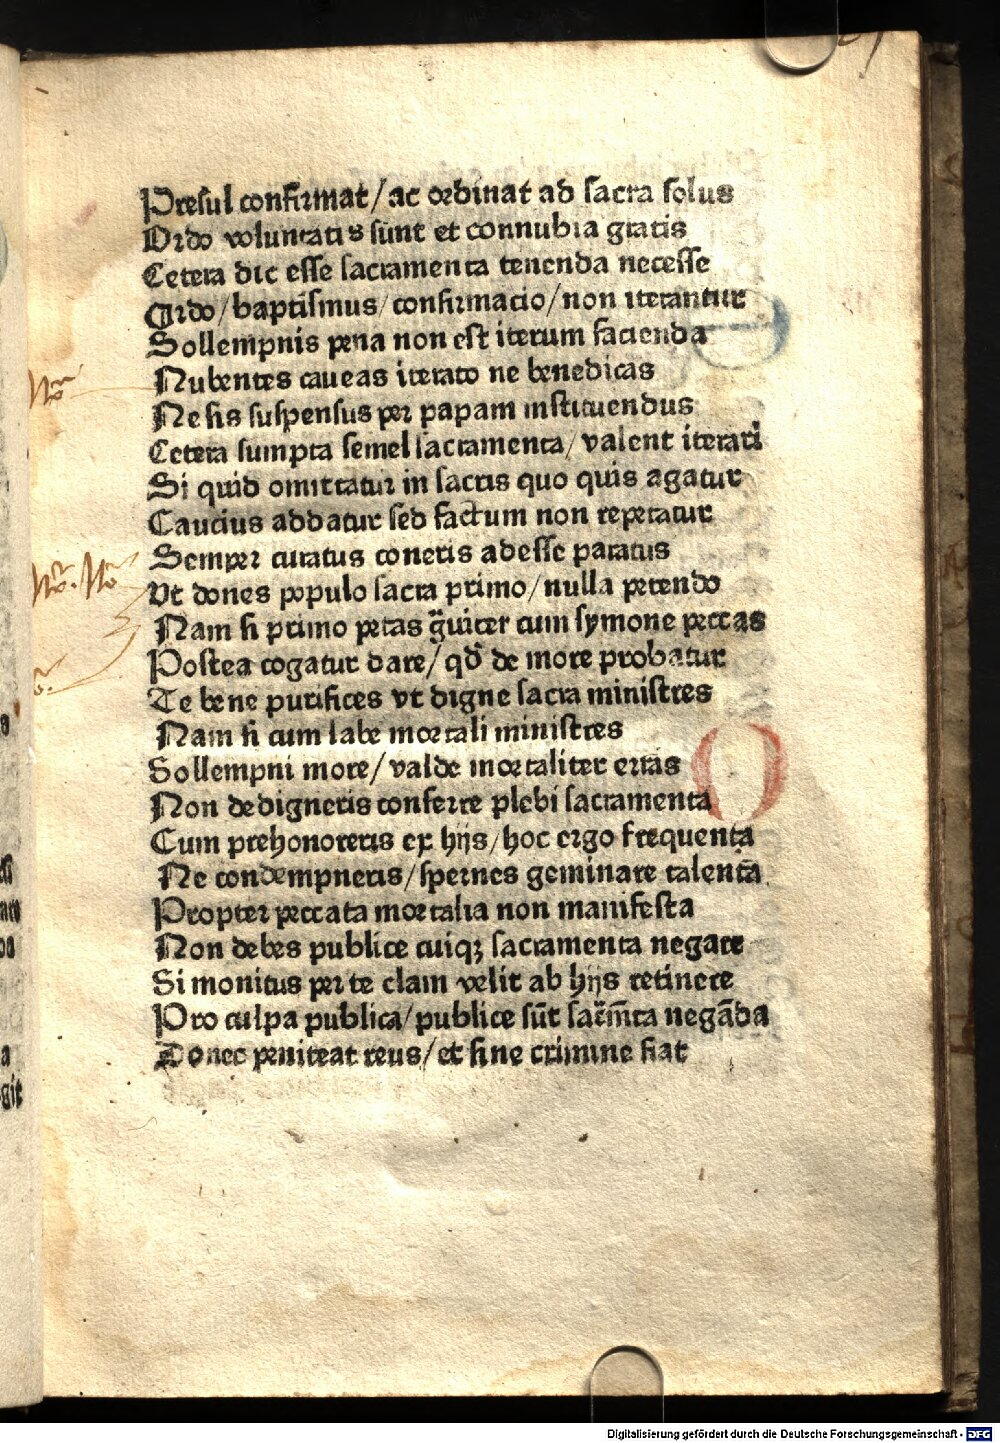 Presul confirmat/ac ordinat ad sacra solus
Ordo voluntatis sunt et connubia gratis
Cetera dic esse sacramenta tenenda necesse
Ordo/baptismus/confirmacio/non iterantur
Sollempnis pena non est iterum facienda
Nubentes caueas iterato ne benedicas
Ne sis suspensus per papam instituendus
Cetera sumpta semel sacramenta/valent iterari
Si quid omittatur in sacris quo quis agatur
Caucius addatur sed factum non reperatur
Semper curatus coneris adesse paratus
Ut dones populo sacra primo/nulla petendo
Nam si primo petas g̃uiter cum symone peccas
Postea cogatur dare/qď de more probatur
Te bene purifices vt digne sacra ministres
Nam si cum labe mortali ministres
Sollempni more/valde mortaliter erras
Non dedigneris conferre plebi sacramenta
Cum prehonoreris ex hijs/hoc ergo frequenta
Ne condempneris/spernes geminare talenta
Propter peccata mortalia non manifesta
Non debes publice cuiqꝫ sacramenta negare
Si monitus per te clam velit ab hijs retinere
Pro culpa publica/publice sūt sacr̄m̄ta negāda
Donec peniteat reus/et sine crimine fiat
Digitalisierung gefördert durch die Deutsche Forschungsgemeinschaft - DFG